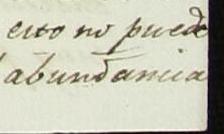 esto no puede
abundancia